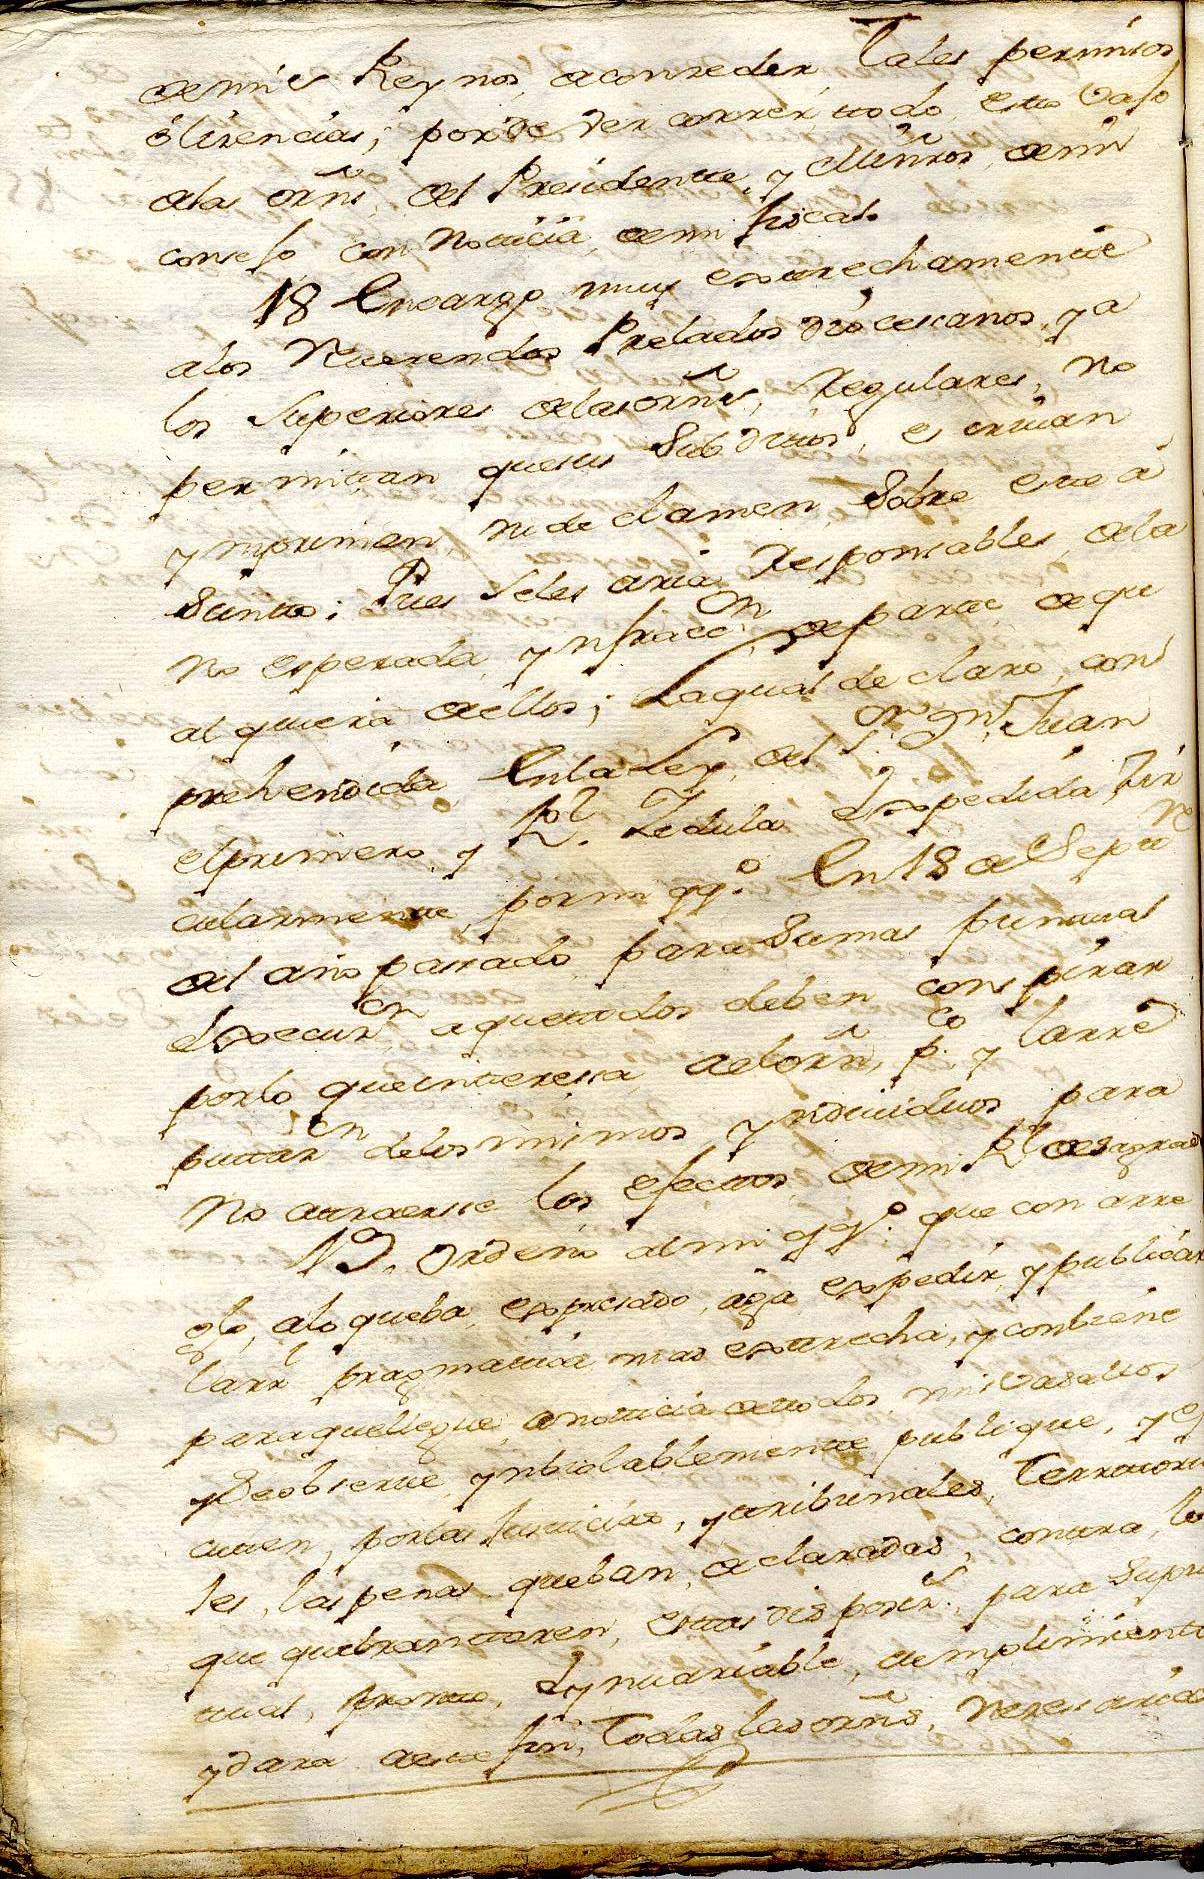 de mis Reynos, a conzeder Tales permisos
ô lizencias; por de Ver correr, ttodo, esto vajo
de las orñs, del Presidentte, y Miñros, de mi
consejo, con Notticia, de mi fiscal.
18 Encargo, muy esttrechamentte
a los Reverendos Prelados Diocesanos, y a
los Superiores de las orñs, Regulares, no
permittan que sus Subdittos, escrivan
ymprimen ni declamen, Sobre estte â
Suntto; Pues Seles aria Responsables, de la
no esperada, ynfraccon, de partte, de qu
alquiera de ellos; La qual declaro, con
prehendida, En la Ley, del Sr. Dn. Juan
el primero, y Rl. Zedula expedida Zir
cularmentte, por mi qqo. En 18 de Septtre
del año passado, para Su mas punttual
Execuzon a que ttodos deben conspirar
por lo que interessa ael orñ, pco. y la rre
puttazon de los mismos yndividuos, para
No attraerse los, efecttos, de mi Rl. desagrado
19. Ordeno al mi qqo. que con arre
glo, a lo que ba, expresado, aga expedir, y publicar
la rrl pragmattica mas esttrecha, y conbiene
para que llegue, a notticia de ttodos, mis Vasallos
y Se observe, ynbiolablementte publique, y eg
cutten, por las Justticias, y ttribunales, Territtoria
les, las penas que ban, declaradas, contra, los
que quebranttaren, esttas disposiz.s, para Su pun
ttual, prontto, Eynvariable, cumplimientto
y dara a estte fin, Todas las orñs, Nezesarias